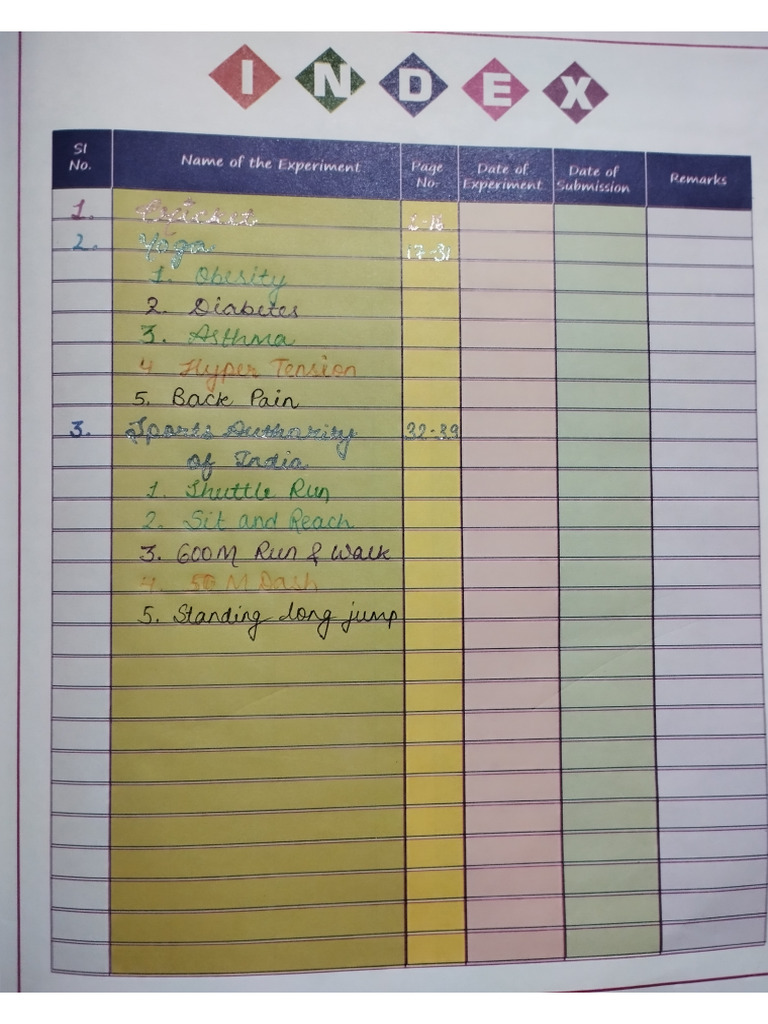 INDEX
Sl No. Name of the Experiment Page No. Date of Experiment Date of Submission Remarks
1. Cricket 1-16
2. Yoga 17-31
1. Obesity
2. Diabetes
3. Asthma
4 Hyper Tension
5. Back Pain
3. Sports Authority 32-39
of India
1. Shuttle Run
2. Sit and Reach
3. 600M Run & Walk
4. 50 M Dash
5. Standing long jump